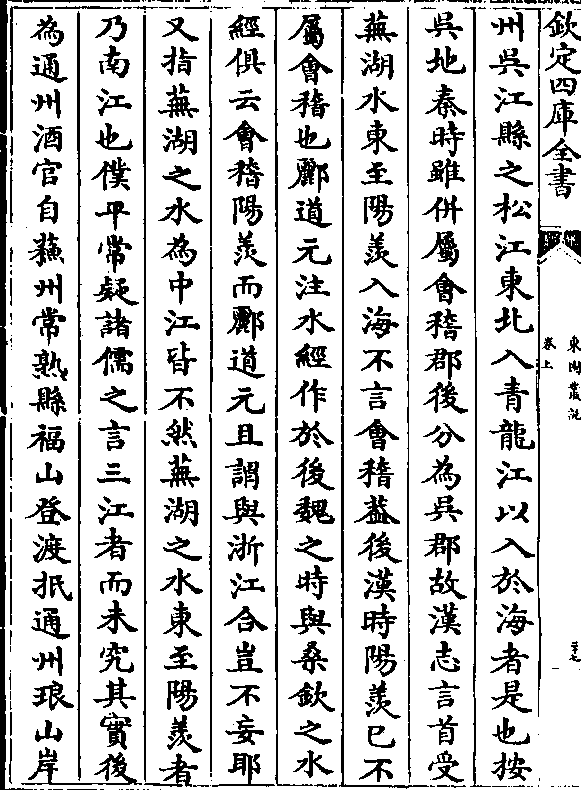 欽定四庫全書
東園叢説
卷上
州吳江縣之松江東北入青龍江以入於海者是也按
吳地秦時雖併屬會稽郡後分為吳郡故漢志言首受
蕪湖水東至陽羨入海不言會稽葢後漢時陽羨已不
屬會稽也酈道元注水經作於後魏之時與桑欽之水
經俱云會稽陽羨而酈道元且謂與浙江合豈不妄耶
又指蕪湖之水為中江皆不然蕪湖之水東至陽羨者
乃南江也僕平常疑諸儒之言三江者而未究其實後
為通州酒官自蘓州常熟縣福山登渡抵通州琅山岸